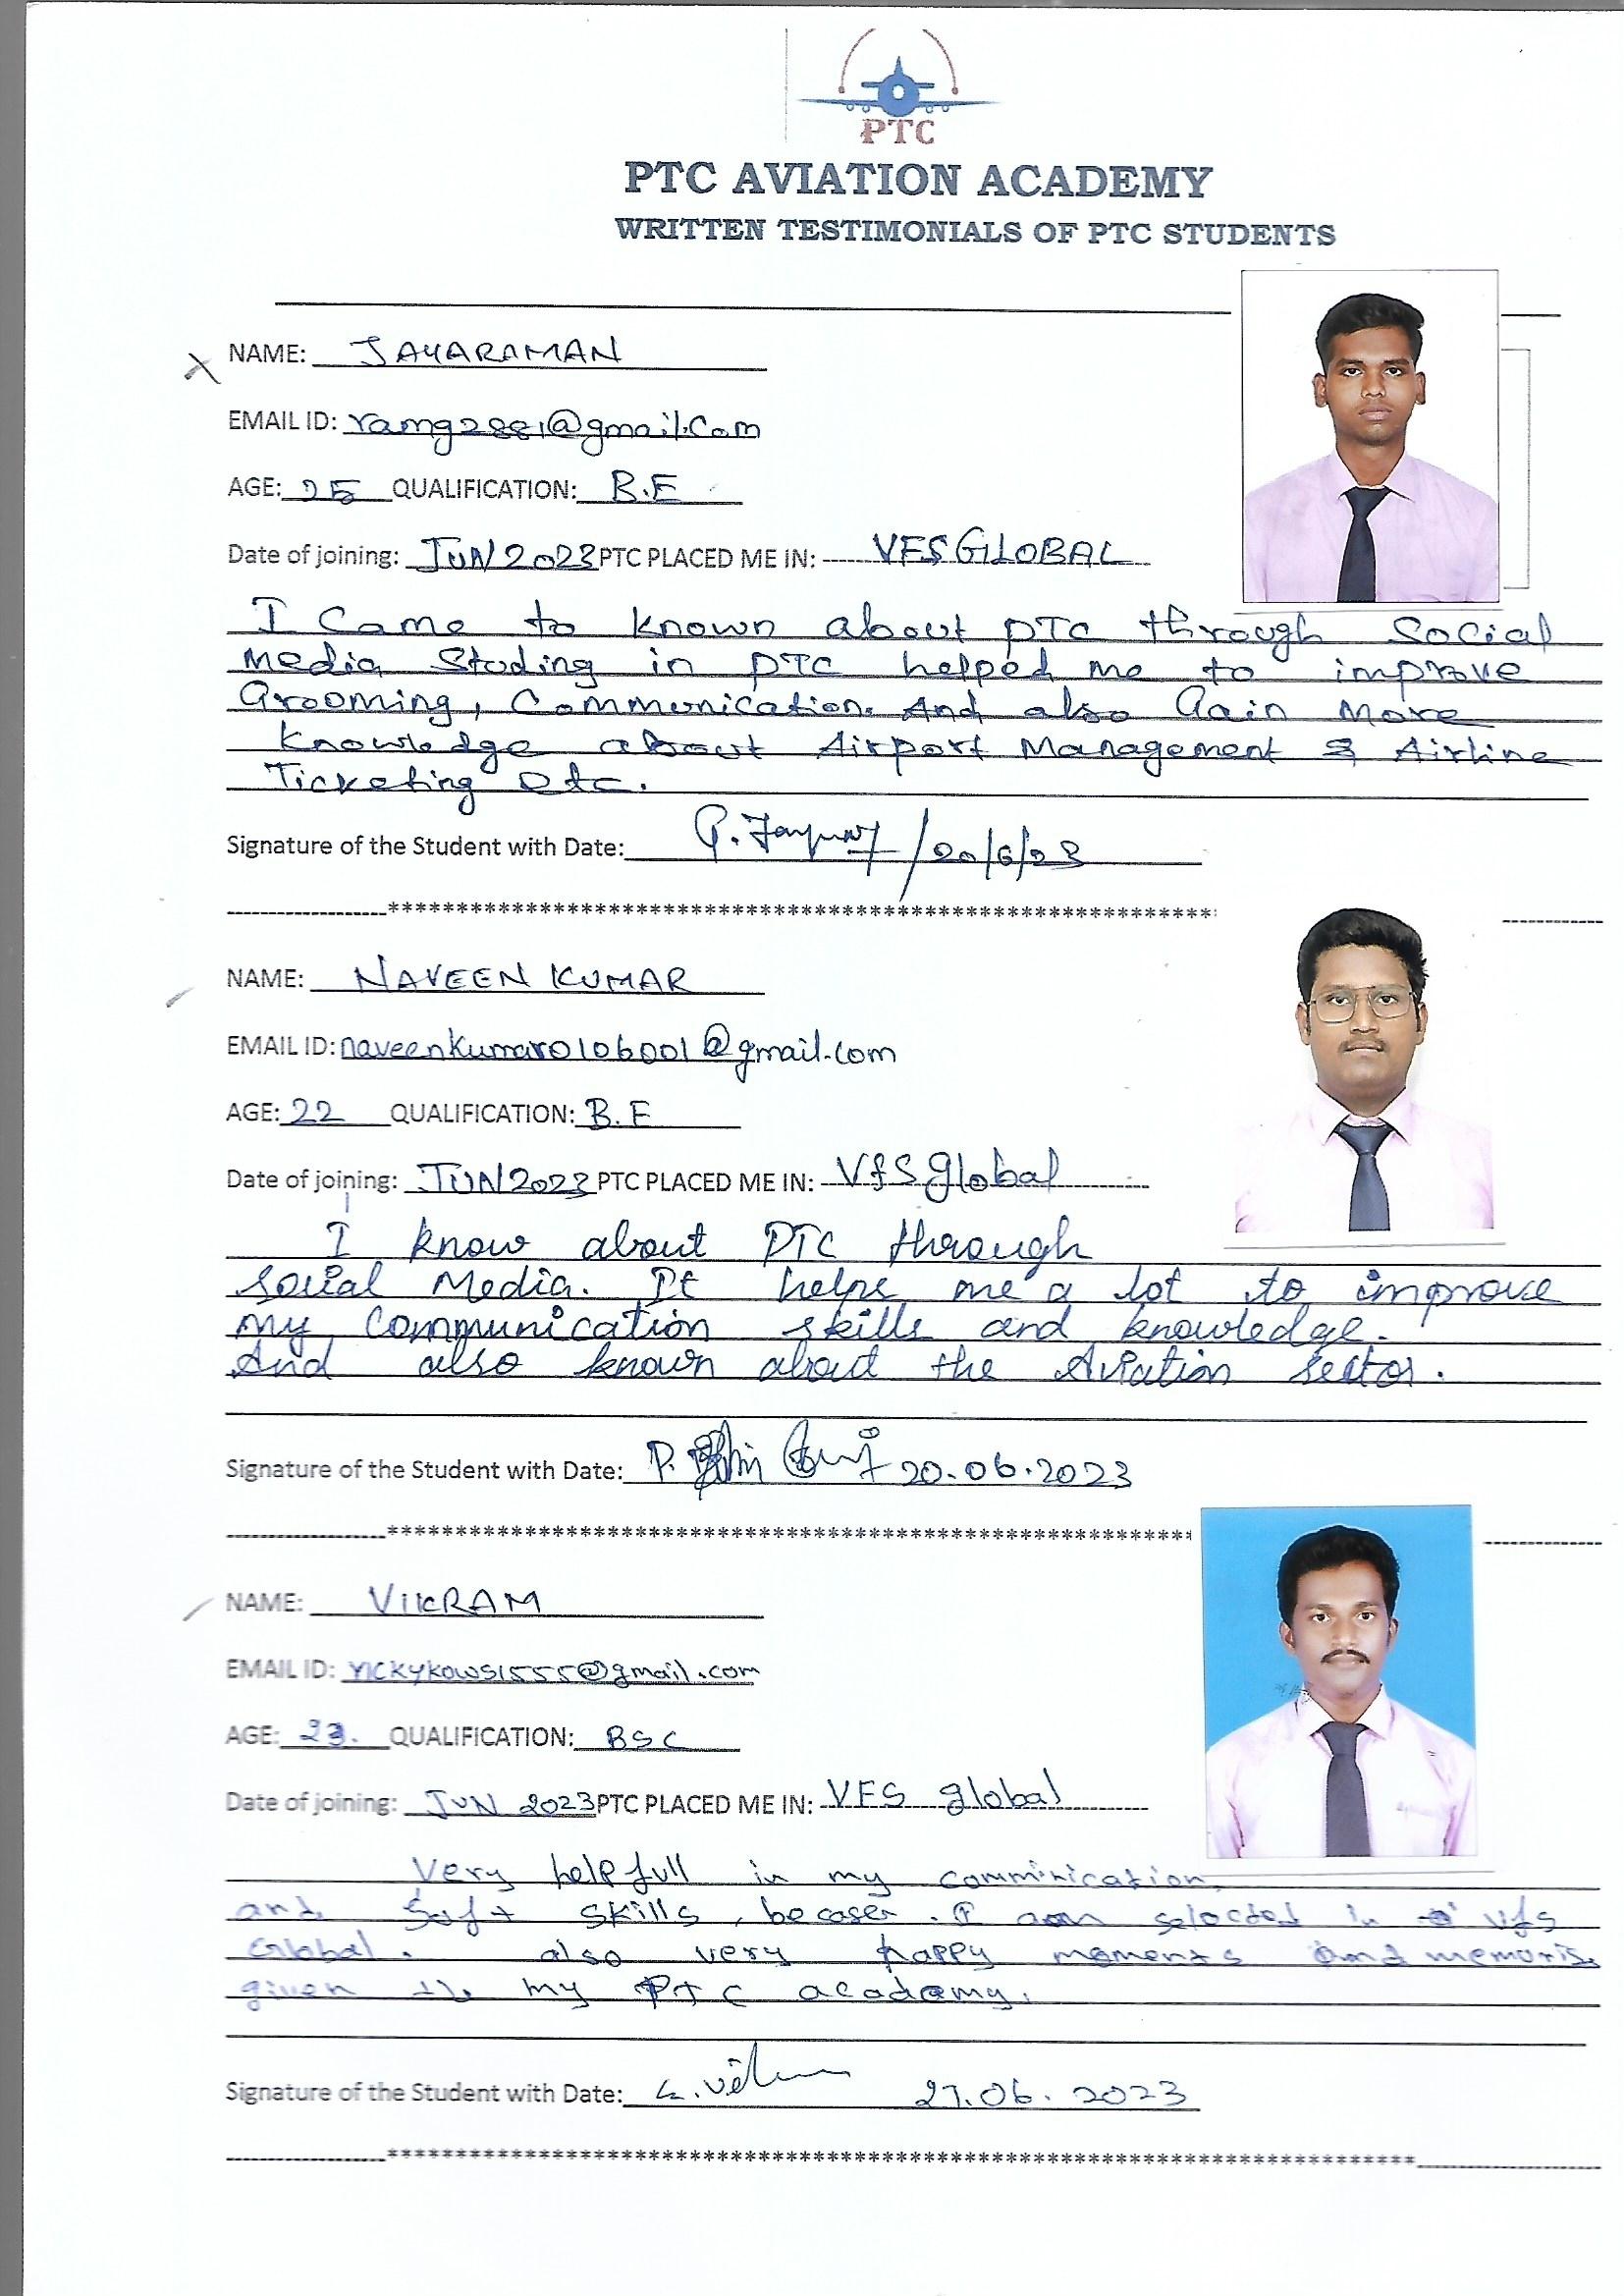 PTC
PTC AVIATION ACADEMY
WRITTEN TESTIMONIALS OF PTC STUDENTS
NAME: JAYARAMAN
EMAIL ID: ramg2881@gmail.com
AGE: 25 QUALIFICATION: B.E
Date of joining: JUN 2023 PTC PLACED ME IN: VFS GLOBAL
I Came to known about PTC through Social
Media Studing in PTC helped me to improve
Grooming, Communication. And also Gain More
Knowledge about Airport Management & Airline
Ticketing etc.
Signature of the Student with Date: 20/6/23
************************************************************
NAME: NAVEEN KUMAR
EMAIL ID: naveenkumar0106001@gmail.com
AGE: 22 QUALIFICATION: B.E
Date of joining: JUN 2023 PTC PLACED ME IN: Vfs global
I know about PTC through
social Media. It helps me a lot to improve
my communication skills and knowledge.
And also known about the Aviation sector.
Signature of the Student with Date: 20.06.2023
************************************************************
NAME: VIKRAM
EMAIL ID: vickykows1555@gmail.com
AGE: 23. QUALIFICATION: BSC
Date of joining: JUN 2023 PTC PLACED ME IN: VFS global
Very helpfull in my comminication,
and Soft skills, becaser. I am selected in vfs
Global. also very happy moments and memoris
given my PTC academy.
Signature of the Student with Date: 27.06.2023
************************************************************